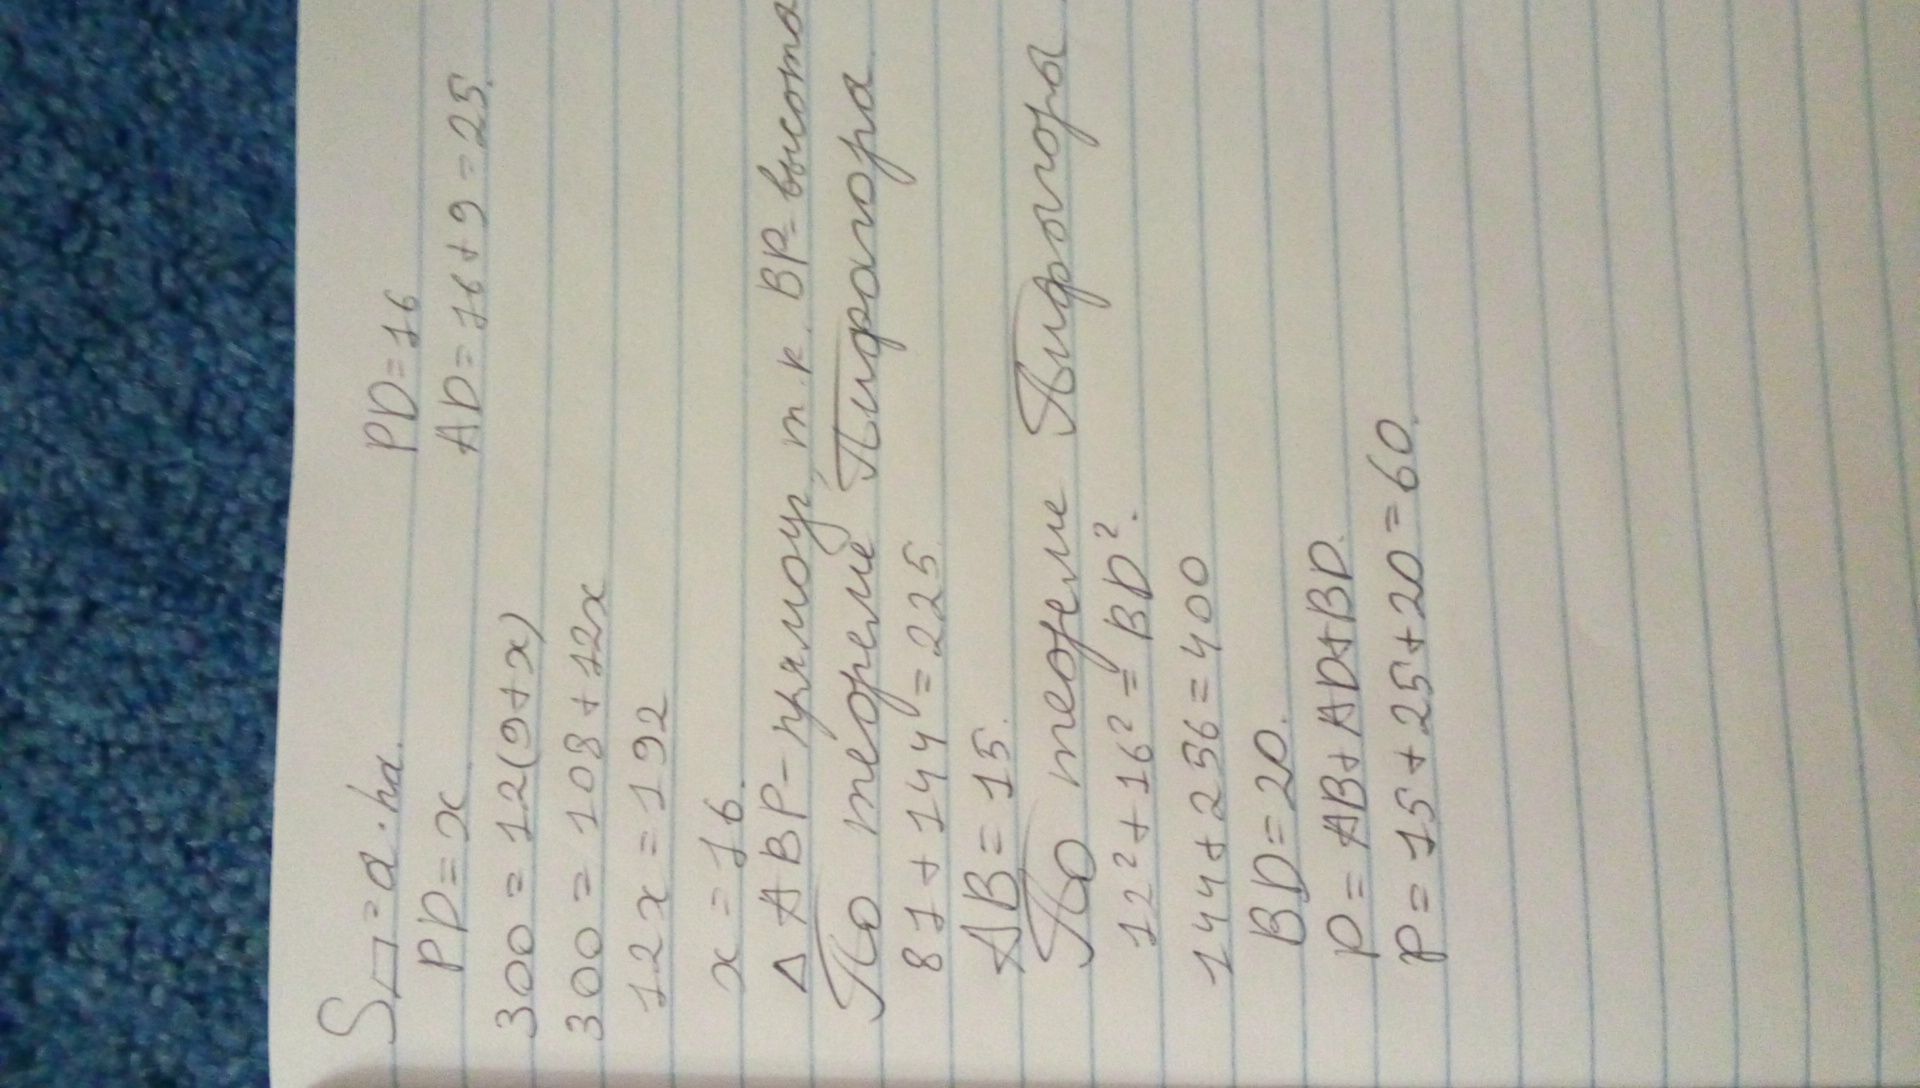 S▱=a·ha.
PD=x
300=12(9+x)
300=108+12x
12x=192
x=16.
PD=16
AD=16+9=25.
△ABP-прямоуг, т.к. BP-высота
По теореме Пифагора
81+144=225.
AB=15.
По теореме Пифагоры
12²+16²=BD².
144+256=400
BD=20.
P=AB+AD+BD.
P=15+25+20=60.